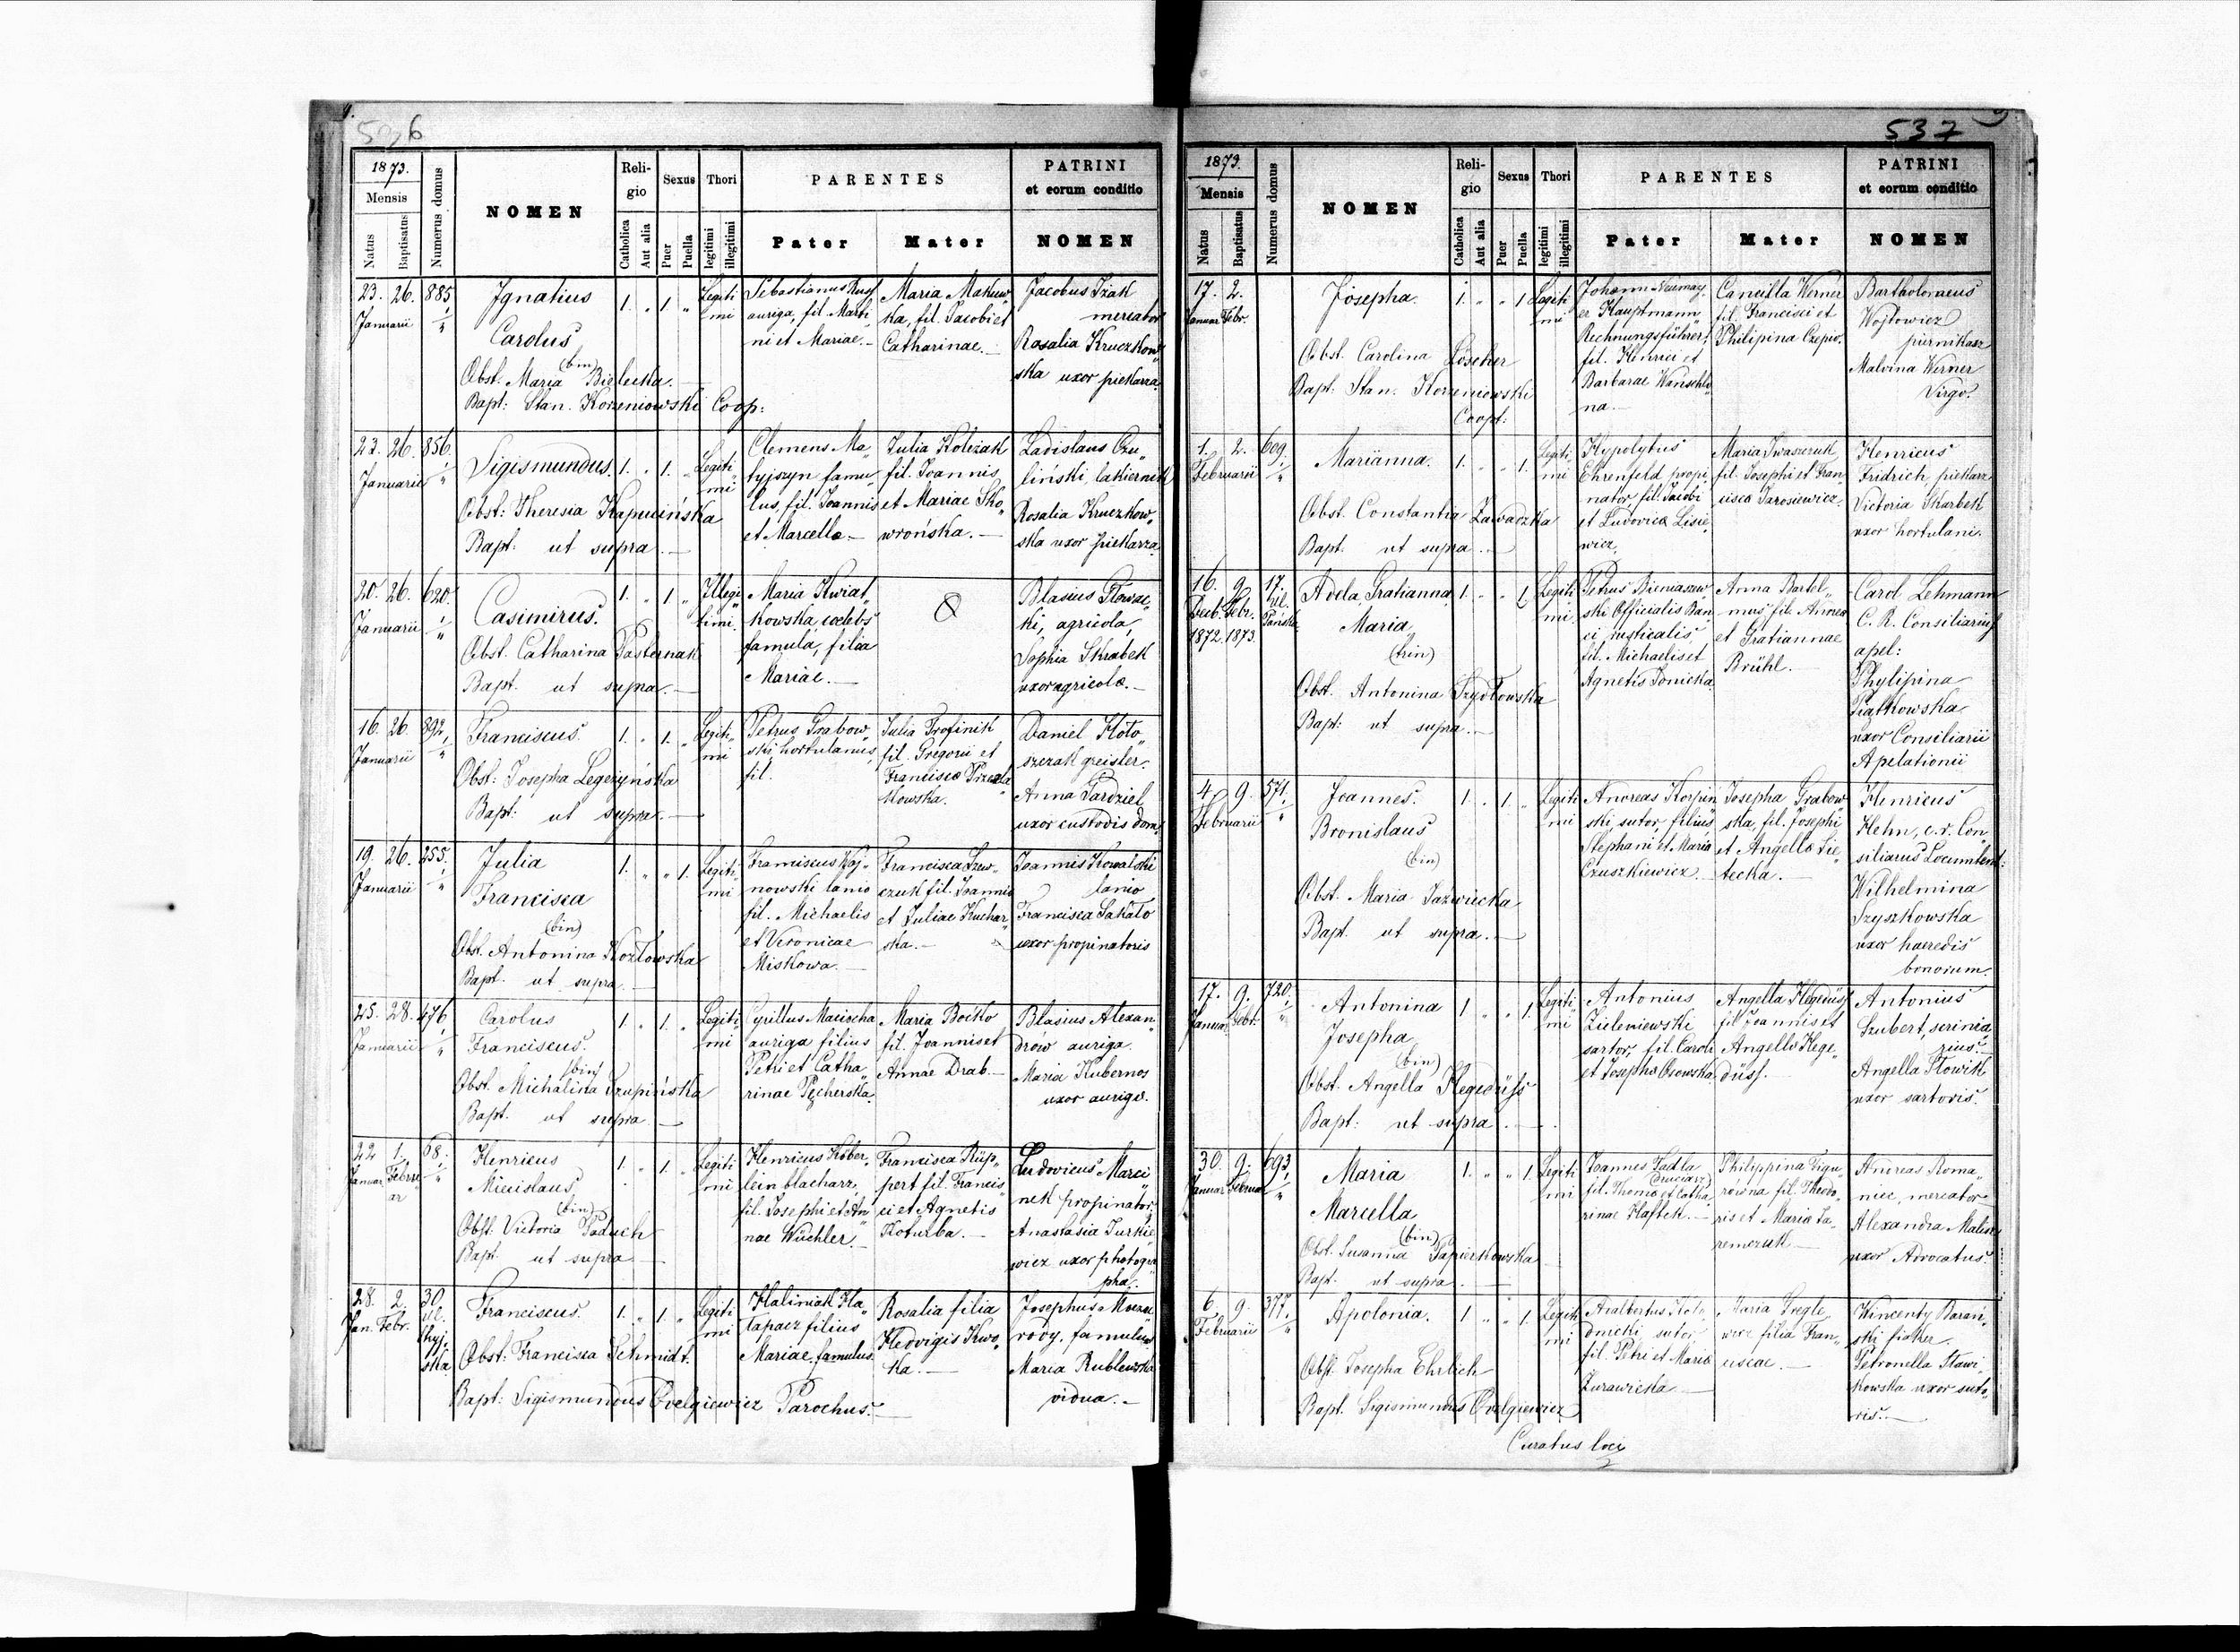 536
1873.
Mensis
Natus
Baptisatus
Numerus domus
NOMEN
Reli-
gio
Catholica
Aut alia
Sexus
Puer
Puella
Thori
legitimi
illegitimi
PARENTES
Pater
Mater
PATRINI
et eorum conditio
NOMEN
23. 26. 885
Januarii
Ignatius
Carolus
(bin)
Obst. Maria Bielecka.
Bapt: Stan. Korzeniowski Coop:
1. " 1. "
Legiti
mi
Sebastianus
auriga, fil. Marti„
ni et Mariae.
Maria Makuw„
ka, fil. Jacobi et
Catharinae.
Jacobus Izak
mercator
Rosalia Kruczkow„
ska uxor piekarza.
23. 26. 856.
Januarii
Sigismundus.
Obst: Theresia Kapucińska
Bapt: ut supra.
1. " 1. "
Legiti„
mi
Clemens Ma„
tyjszyn famu„
lus, fil. Joannis
et Marcella.
Julia Kolczak
fil. Joannis
et Mariae Sko„
wrońska.
Ladislaus Czu„
liński, lakiernik
Rosalia Kruczkow„
ska uxor piekarza
20. 26. 620.
Januarii
Casimirus.
Obst. Catharina Pasternak
Bapt. ut supra.
1. " 1. "
Illegi„
timi.
Maria Kwiat„
kowska, coelebs
famula, filia
Mariae.
Blasius Głowac„
ki, agricola,
Sophia Skrabek
uxor agricolæ.
16. 26. 892
Januarii
Franciscus.
Obst: Josepha Legezyńska
Bapt: ut supra.
1. " 1. "
Legiti„
mi
Petrus Grabow„
ski, hortulanus,
fil.
Julia Trofinik
fil. Gregorii et
Francisca
kowska.
Daniel Koto„
szczak greisler.
Anna Gardziel
uxor custodis dom.
19. 26. 255.
Januarii
Julia
Francisca
(bin)
Obst. Antonina Kozłowska
Bapt. ut supra.
1. " " 1.
Legiti„
mi
Franciscus Koj„
nowski lanio
fil. Michaelis
et Veronicae
Miskowa.
Francisca Szew„
czuk fil. Joannis
et Juliae Kuchar„
ska.
Joannis Kowalski
lanio
Francisca Sakało
uxor propinatoris
25. 28. 476.
Januarii
Carolus
Franciscus.
(bin)
Obst. Michalina Szupińska
Bapt. ut supra.
1. " 1. "
Legiti„
mi
Cyrillus Maciocha
auriga filius
Petri et Catha„
rinae Pęcherska.
Maria Boćko
fil. Joannis et
Annae Drab.
Blasius Alexan„
drow auriga.
Maria Kubernos
uxor aurigæ.
22 1. 68.
Januar. Febru„
ar
Henricus
Miecislaus
(bin)
Obst. Victoria Paduch
Bapt. ut supra.
1. " 1. "
Legiti
mi
Henricus Köber„
lein blacharz
fil. Josephi et An„
nae Wuchler.
Francisca Rüp„
pert fil. Francis„
ci et Agnetis
Koturba.
Ludovicus Marci„
nek propinator.
Anastasia Turkie„
wicz uxor photogra„
pha.
28. 2. 30.
Jan. Febr.
Franciscus.
Obst: Francisca Schmidt.
Bapt: Sigismundus Odelgiewicz Parochus.
1. " 1. "
Legiti
mi
Haliniak Ha„
łapacz filius
Mariae, famulus.
Rosalia filia
Hedvigis Kwo„
ka.
Josephus
famulus
Maria Rublewska
vidua.
537
1873.
Mensis
Natus
Baptisatus
Numerus domus
NOMEN
Reli-
gio
Catholica
Aut alia
Sexus
Puer
Puella
Thori
legitimi
illegitimi
PARENTES
Pater
Mater
PATRINI
et eorum conditio
NOMEN
17. 2.
Januar. Febr.
Josepha.
Obst. Carolina Löscher
Bapt: Stan. Korzeniowski
Coopt:
1. " " 1
Legiti
mi
Johann Neumay„
er Hauptmann
Rechnungsführer,
fil. Henrici et
Barbarae Wanschli„
na.
Cancilla Werner
fil. Francisci et
Philipina Czepio.
Bartholomeus
Wojtowicz
piernikarz
Malvina Werner
Virgo.
1. 2. 609.
Februarii
Marianna.
Obst. Constantia Zawadzka
Bapt. ut supra.
1. " " 1.
Legiti„
mi
Hypolytus
Ehrenfeld propi„
nator fil. Jacobi
et Ludovica Lisie„
wicz.
Maria Iwaszczuk
fil. Josephi et Fran„
cisca Jarosiewicz.
Henricus
Fridrich, piekarz
Victoria Skarbek
uxor hortulani.
16. 9. 17.
Decb. Febr.
1872. 1873.
Adela Gratianna
Maria
(trin)
Obst. Antonina Szydłowska
Bapt: ut supra.
1. " " 1
Legiti
mi
Petrus Bieniaszew„
ski Officialis Ban„
ci rusticalis,
fil. Michaelis et
Agnetis Tonicka.
Anna Bartel„
mus fil. Andreæ
et Gratiannae
Brühl.
Carol Lehmann
C. R. Consiliarius
apel:
Phylipina
Piątkowska
uxor Consiliarii
Apelationii
4. 9. 571.
Februarii
Joannes.
Bronislaus
(bin)
Obst. Maria Jaźwiecka
Bapt. ut supra.
1. " 1. "
Legiti
mi
Andreas Korpin„
ski, sutor, filius
Stephani et Maria
Czuszkiewicz.
Josepha Grabow„
ska, fil. Josephi
et Angellæ Sie„
tecka.
Henricus
Hehn, c. r. Con„
siliarus Locumtent:
Wilhelmina
Szyszkowska
uxor haeredis
bonorum.
17. 9. 720.
Januar. Febr.
Antonina
Josepha
(bin)
Obst. Angella Hegedüss
Bapt: ut supra.
1. " " 1.
Legiti
mi
Antonius
Zieleniewski
sartor, fil. Caroli
et Josepha Osowska.
Angella Hegedüss
fil Joannis et
Angella Hege„
düss.
Antonius
Szubert, scrinia„
rius.
Angella Słowik
uxor sartoris.
30. 9. 693.
Januar Februar
Maria
Marcella
(bin)
Obst. Susanna Papierkowska
Bapt. ut supra.
1. " " 1.
Legiti
mi
Joannes Sadla
fil. Thoma et Catha„
rinae Haftek.
Philippina Figu„
równa fil. Theodo„
ris et Maria Ja„
remczuk
Andreas Roma„
niec, mercator
Alexandra Malin
uxor Advocatus.
6. 9. 377.
Februarii
Apolonia.
Obst. Josepha Ehrlich
Bapt. Sigismundus Odelgiewicz
Curatus loci
1 " " 1.
Legiti
mi
Adalbertus Koło„
dnicki, sutor
fil. Petri et Maria
Żurawicka
Maria Gregle„
wicz filia Fran„
ciscae.
Wincenty Barań„
ski fiaker.
Petronella Stawi„
kowska uxor suto„
ris.